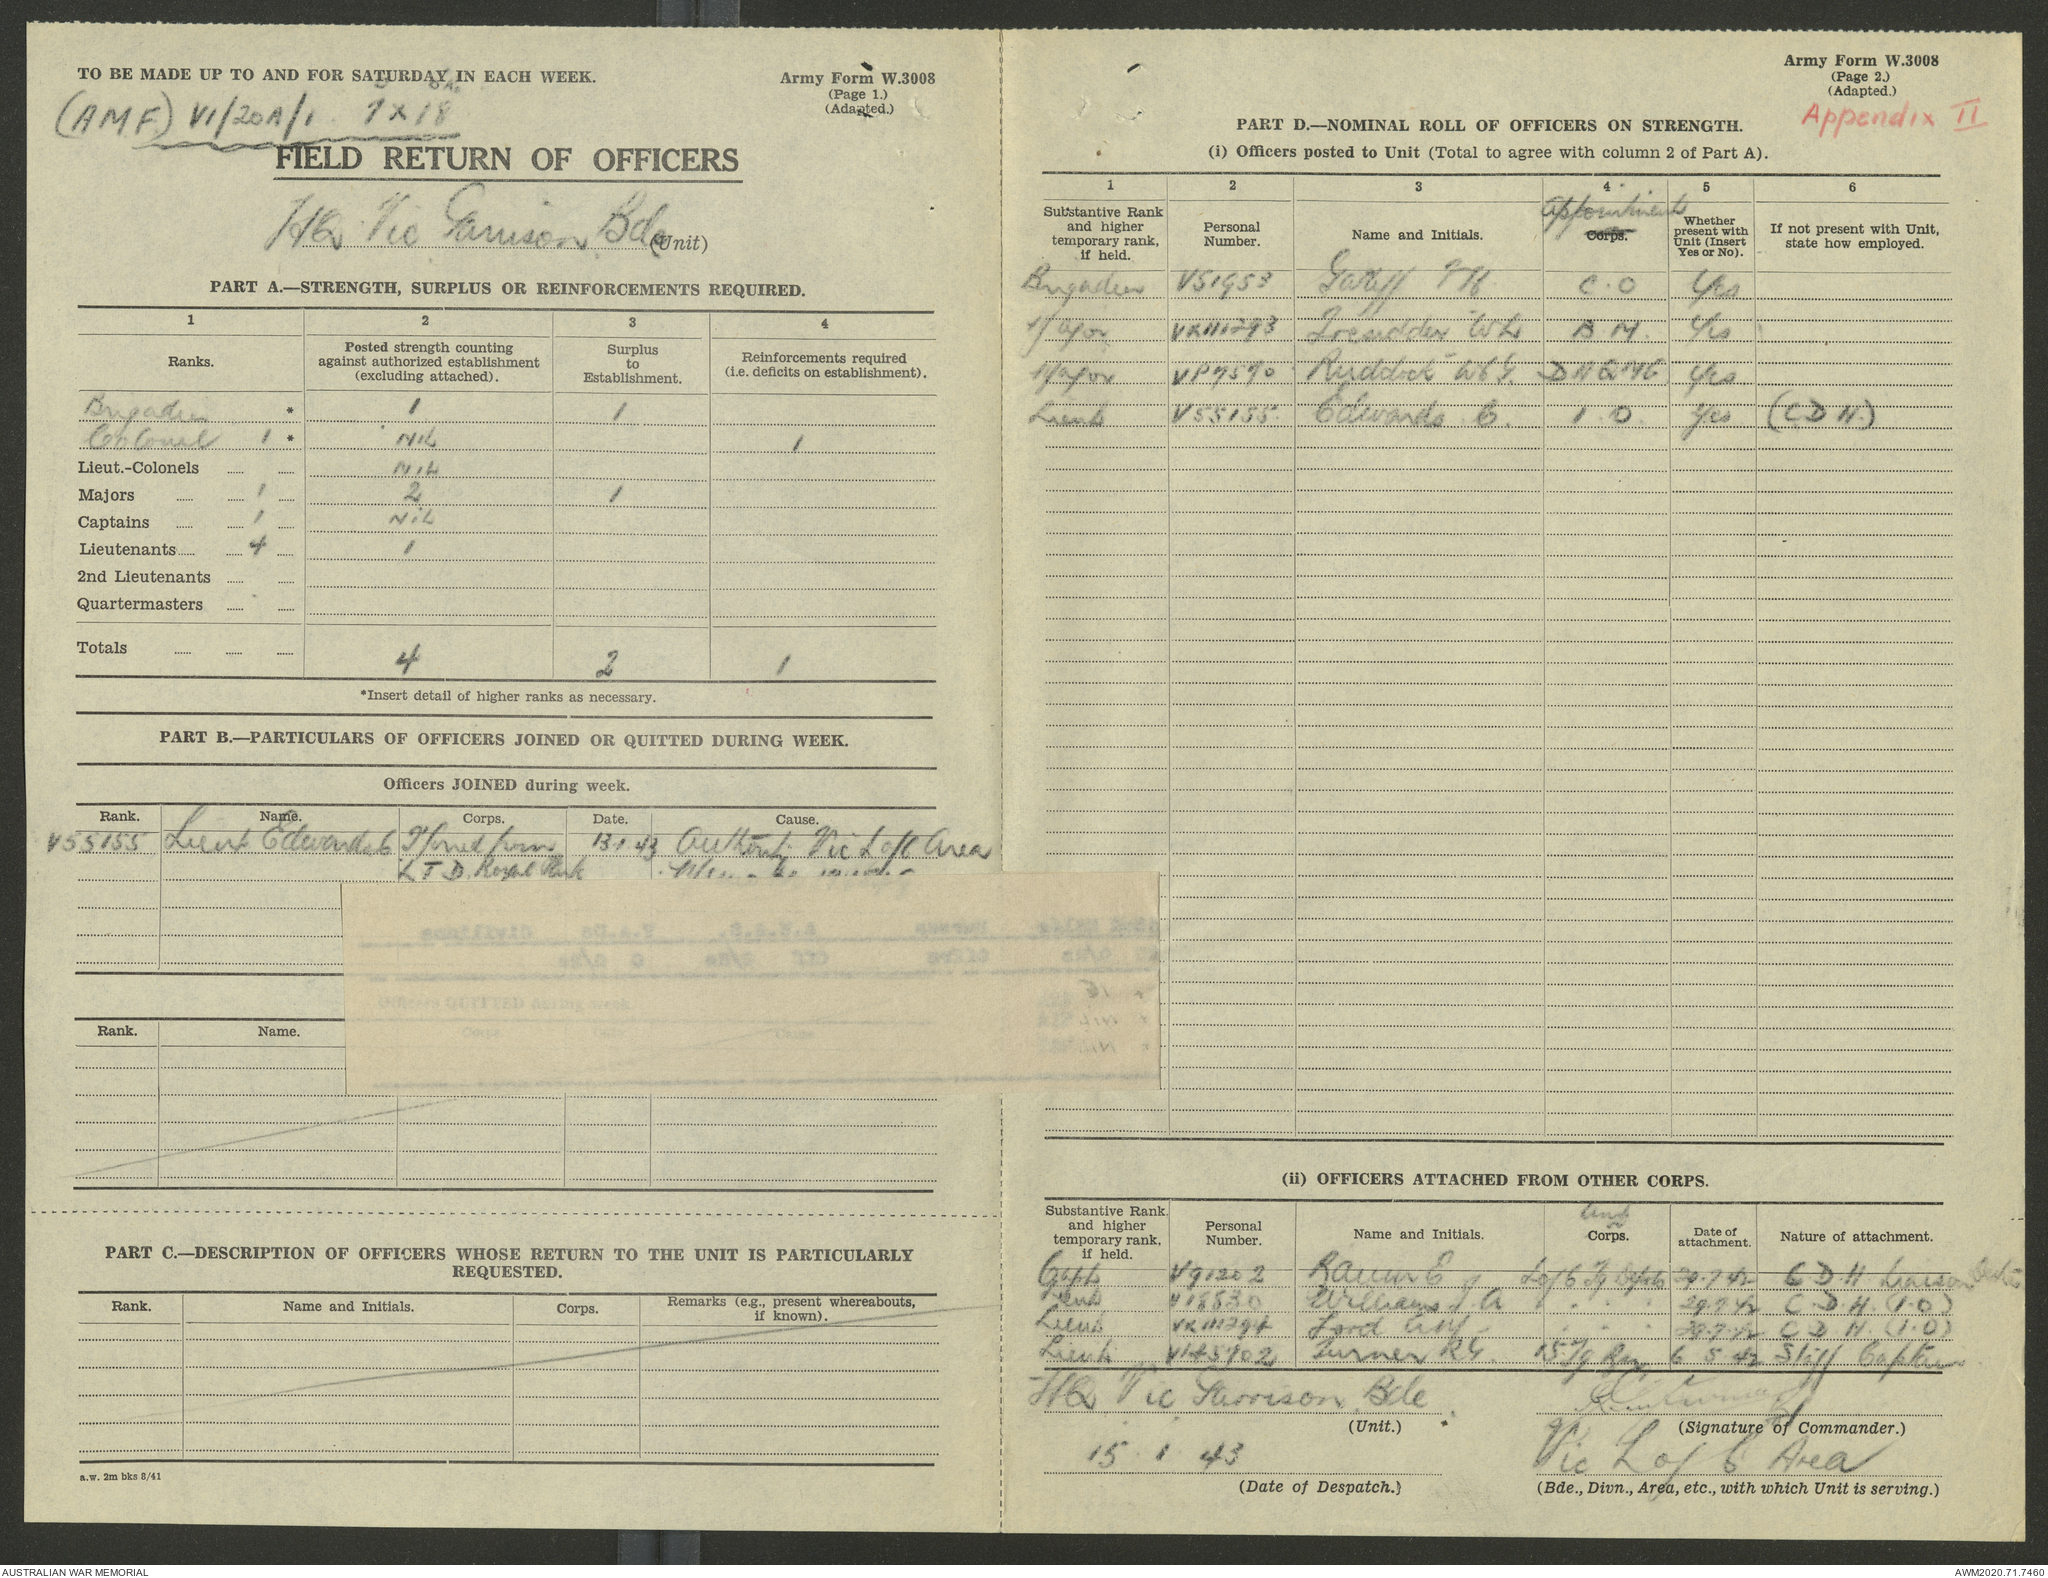 TO BE MADE UP TO AND FOR SATURDAY IN EACH WEEK.
Army Form W.3008
(Page 1.)
(Adapted.)
(AMF) VI/20A/1
FIELD RETURN OF OFFICERS
HQ Vic Garrison Bde (Unit)
PART A.—STRENGTH, SURPLUS OR REINFORCEMENTS REQUIRED.
1 2 3 4
Ranks. Posted strength counting against authorized establishment (excluding attached). Surplus to Establishment. Reinforcements required (i.e. deficits on establishment).
Brigadier * 1 1
Colonel 1 * Nil 1
Lieut.-Colonels Nil
Majors 1 2 1
Captains 1 Nil
Lieutenants 4 1
2nd Lieutenants
Quartermasters
Totals 4 2 1
*Insert detail of higher ranks as necessary.
PART B.—PARTICULARS OF OFFICERS JOINED OR QUITTED DURING WEEK.
Officers JOINED during week.
Rank. Name. Corps. Date. Cause.
V55155 Lieut Edwards C T'ferred from 13 1 43 Authority Vic L of C Area
LTD Royal Park
Officers QUITTED during week.
Rank. Name. Corps. Date. Cause.
PART C.—DESCRIPTION OF OFFICERS WHOSE RETURN TO THE UNIT IS PARTICULARLY
REQUESTED.
Rank. Name and Initials. Corps. Remarks (e.g., present whereabouts, if known).
a.w. 2m bks 8/41
Army Form W.3008
(Page 2.)
(Adapted.)
Appendix II
PART D.—NOMINAL ROLL OF OFFICERS ON STRENGTH.
(i) Officers posted to Unit (Total to agree with column 2 of Part A).
1 2 3 4 5 6
Substantive Rank and higher temporary rank, if held. Personal Number. Name and Initials. Appointment Corps. Whether present with Unit (Insert Yes or No). If not present with Unit, state how employed.
Brigadier V51953 C.O Yes
Major VX111293 Tresidder WL B M. Yes
Major VP7570 Ruddock W G. Yes
Lieut V55155 Edwards C. I O. Yes (C D H.)
(ii) OFFICERS ATTACHED FROM OTHER CORPS.
Substantive Rank and higher temporary rank, if held. Personal Number. Name and Initials. Unit Corps. Date of attachment. Nature of attachment.
Capt V91202 L of C 29.7.42 C D H Liaison
Lieut V18830 Williams J. A " . . . 29.7.42 C. D. H. (I.O)
Lieut Ford . . . 29.7.42 C D H (I.O)
Lieut V145702 Turner R G. 15 Tg 6 5 42 Staff Captain
HQ Vic Garrison Bde
(Unit.)
(Signature of Commander.)
15 . 1 . 43
Vic L of C Area
(Date of Despatch.)
(Bde., Divn., Area, etc., with which Unit is serving.)
AUSTRALIAN WAR MEMORIAL
AWM2020.71.7460